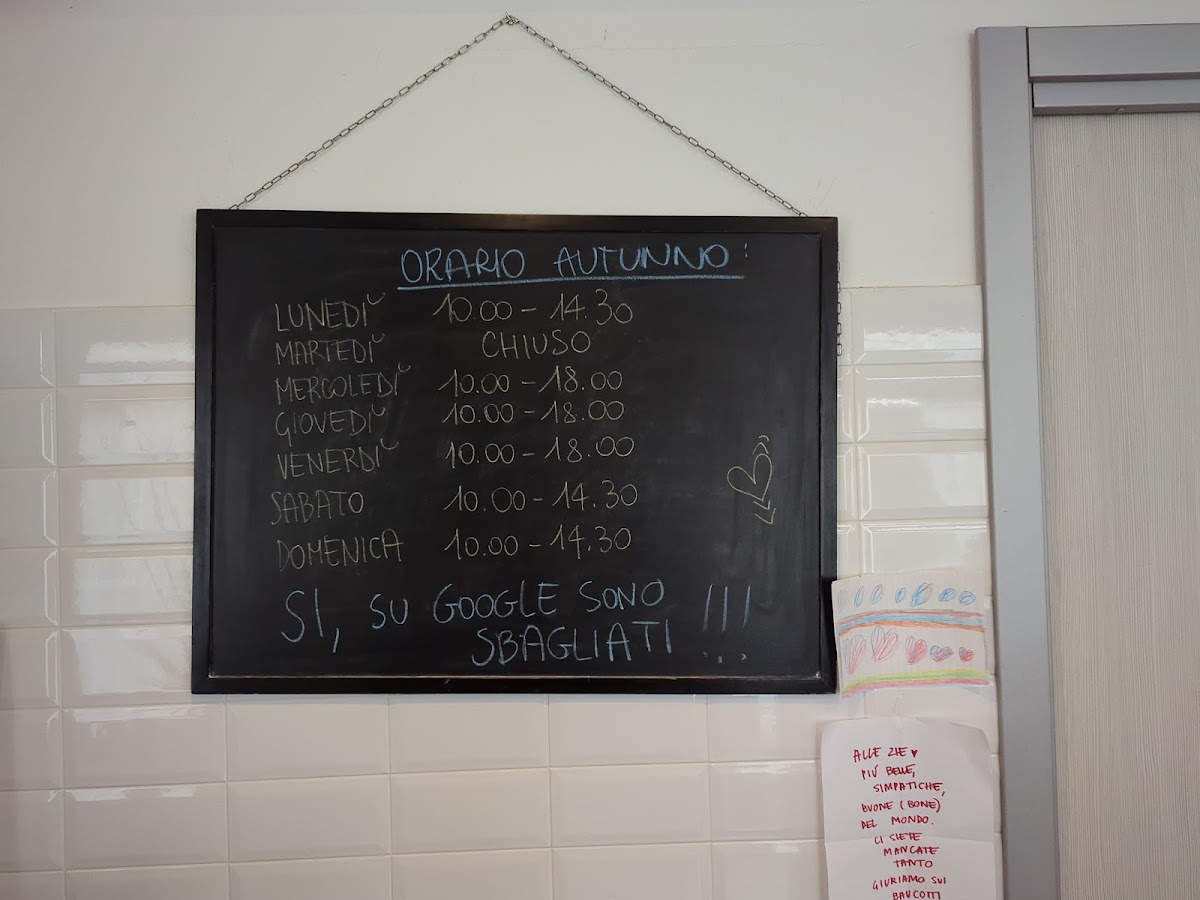 ORARIO AUTUNNO:
LUNEDÌ 10.00 - 14.30
MARTEDÌ CHIUSO
MERCOLEDÌ 10.00 - 18.00
GIOVEDÌ 10.00 - 18.00
VENERDÌ 10.00 - 18.00
SABATO 10.00 - 14.30
DOMENICA 10.00 - 14.30
SI, SU GOOGLE SONO
SBAGLIATI !!!
ALLE ZIE ♥
PIÙ BELLE,
SIMPATICHE,
BUONE (BONE)
DEL MONDO.
CI SIETE
MANCATE
TANTO
GIURIAMO SUI
BAUCOTTI